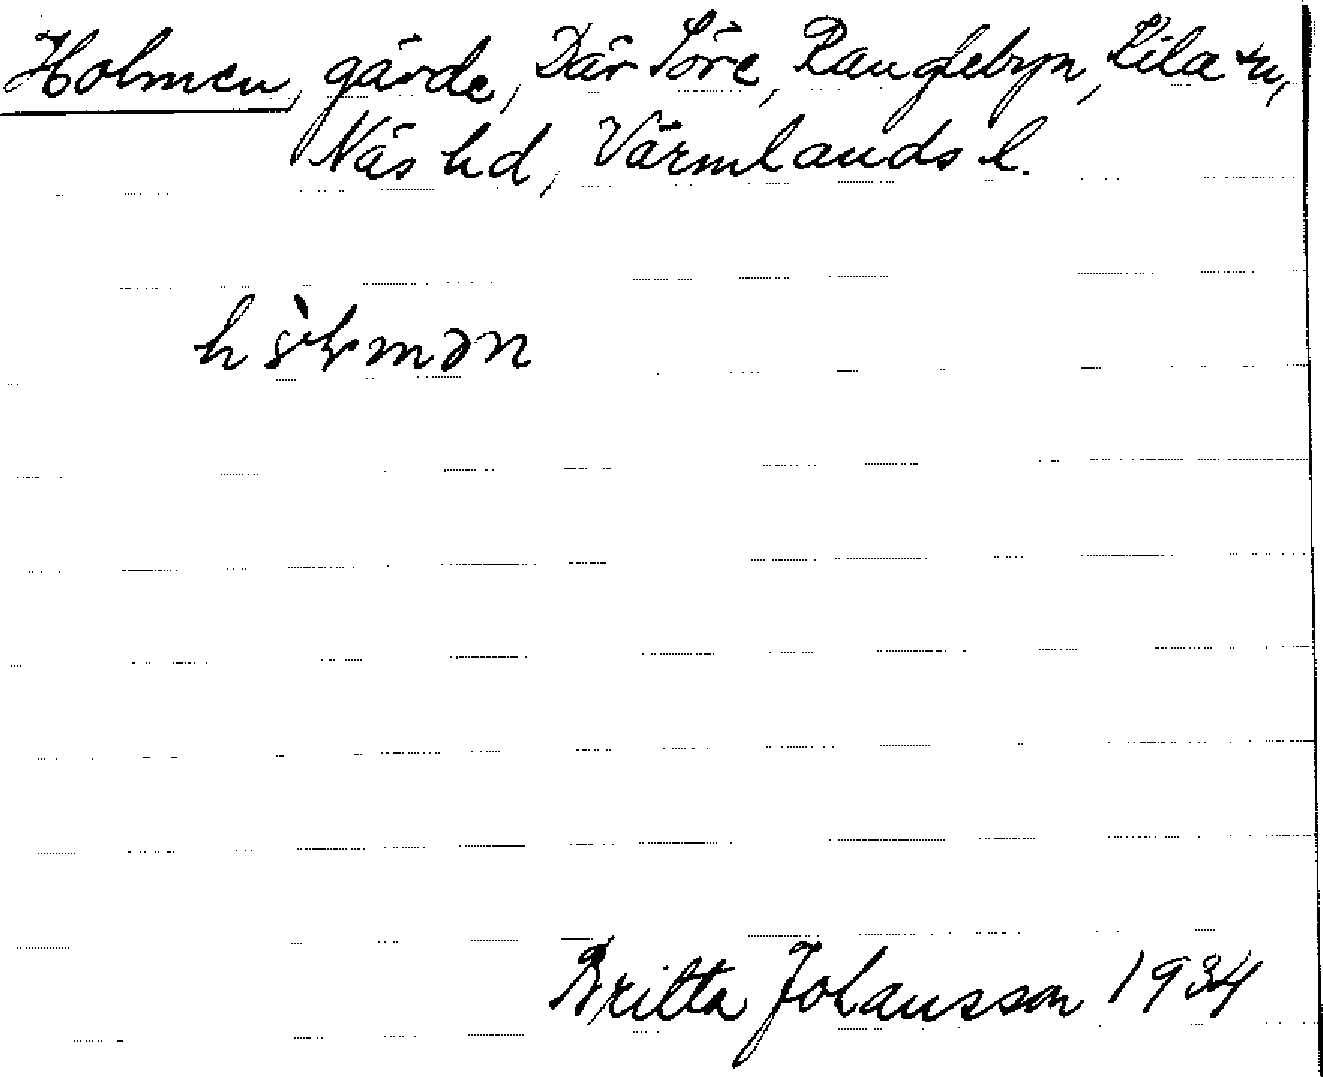 Holmen, gärde, Där Söre, Ranglebyn, Kila sn,
Näs hd, Värmlands l.
Britta Johansson 1934